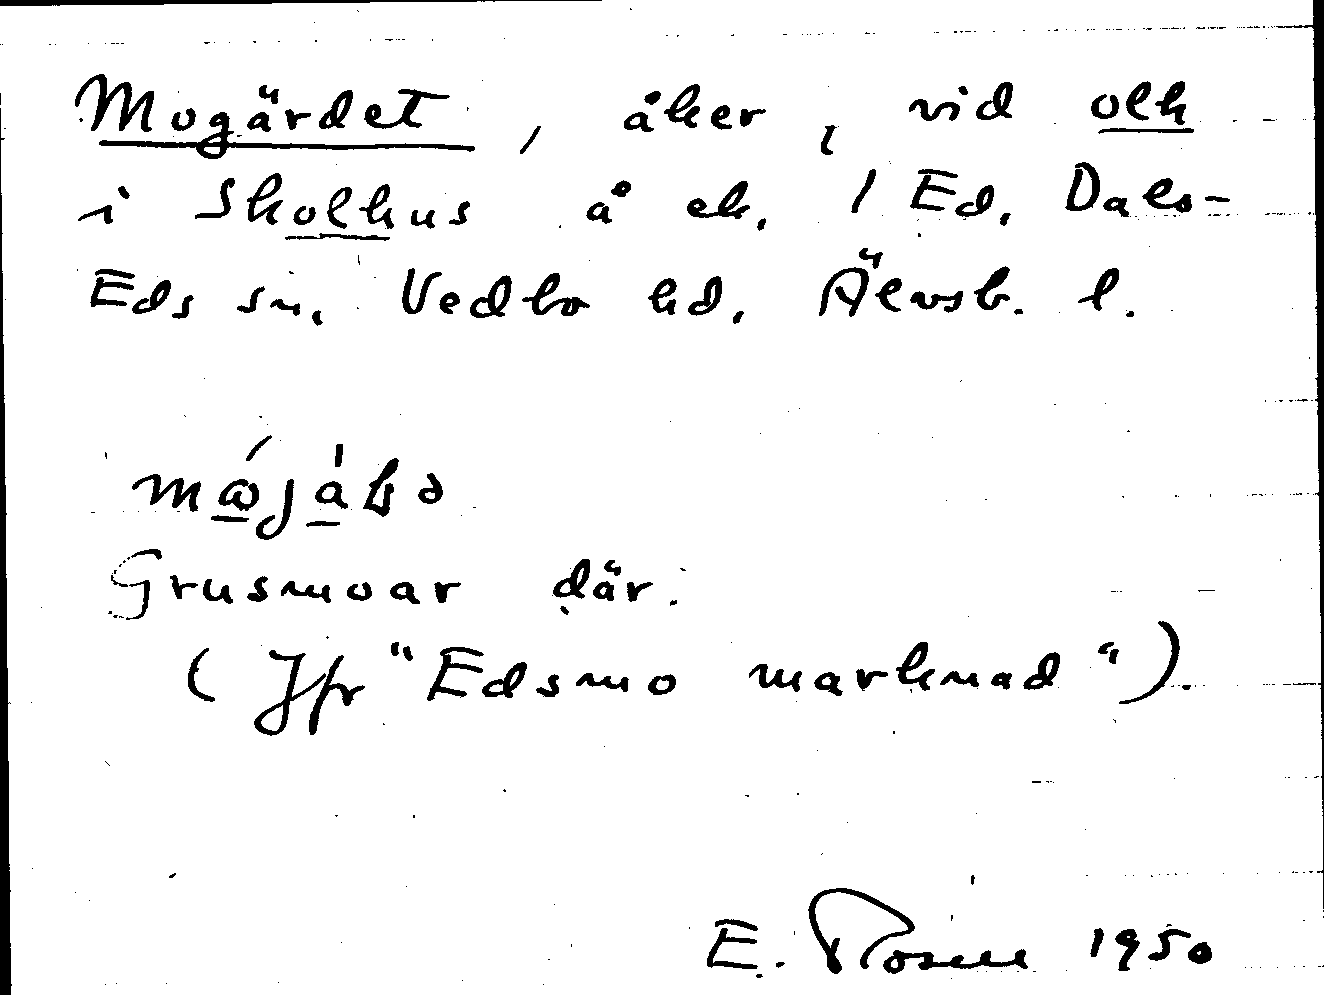 Mogärdet, åker, vid olk
i Skolhus å ek. 1 Ed, Dals-
Eds sn, Vedbo hd, Älvsb. l.
Grusmoar där.
(Jfr "Edsmo marknad").
E. Rosén 1950